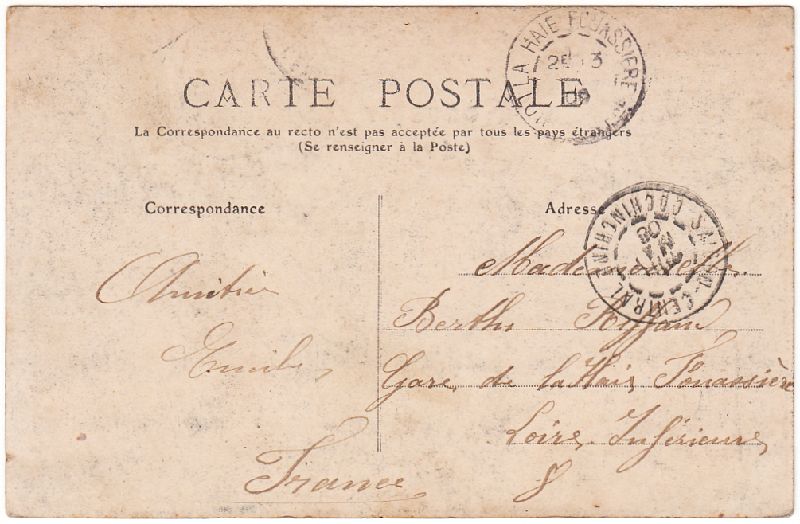 LA HAIE FOUASSIERE
CARTE POSTALE
La Correspondance au recto n'est pas acceptée par tous les pays étrangers
(Se renseigner à la Poste)
Correspondance
Adresse
SAIGON-CENTRAL
COCHINCHINE
Amitié
Emile
Mademoiselle
Berthe
Gare de la Haie Fouassière
Loire Inférieure
France